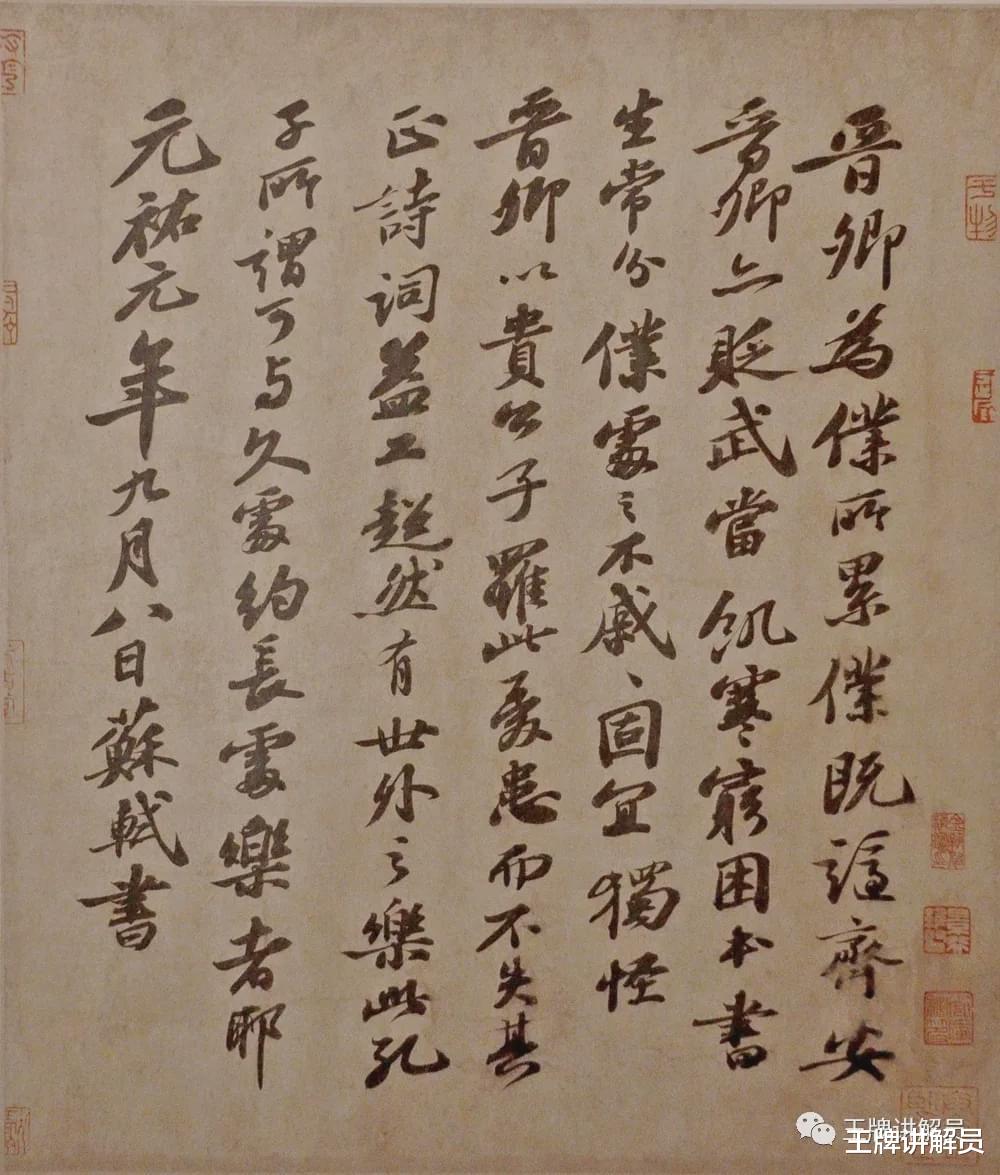 晉卿為僕所累僕既謫齊安
晉卿亦貶武當飢寒窮困本書
生常分僕處之不戚戚固宜獨怪
晉卿以貴公子罹此憂患而不失其
正詩詞益工超然有世外之樂此孔
子所謂可與久處約長處樂者耶
元祐元年九月八日蘇軾書
王牌讲解员
王牌讲解员